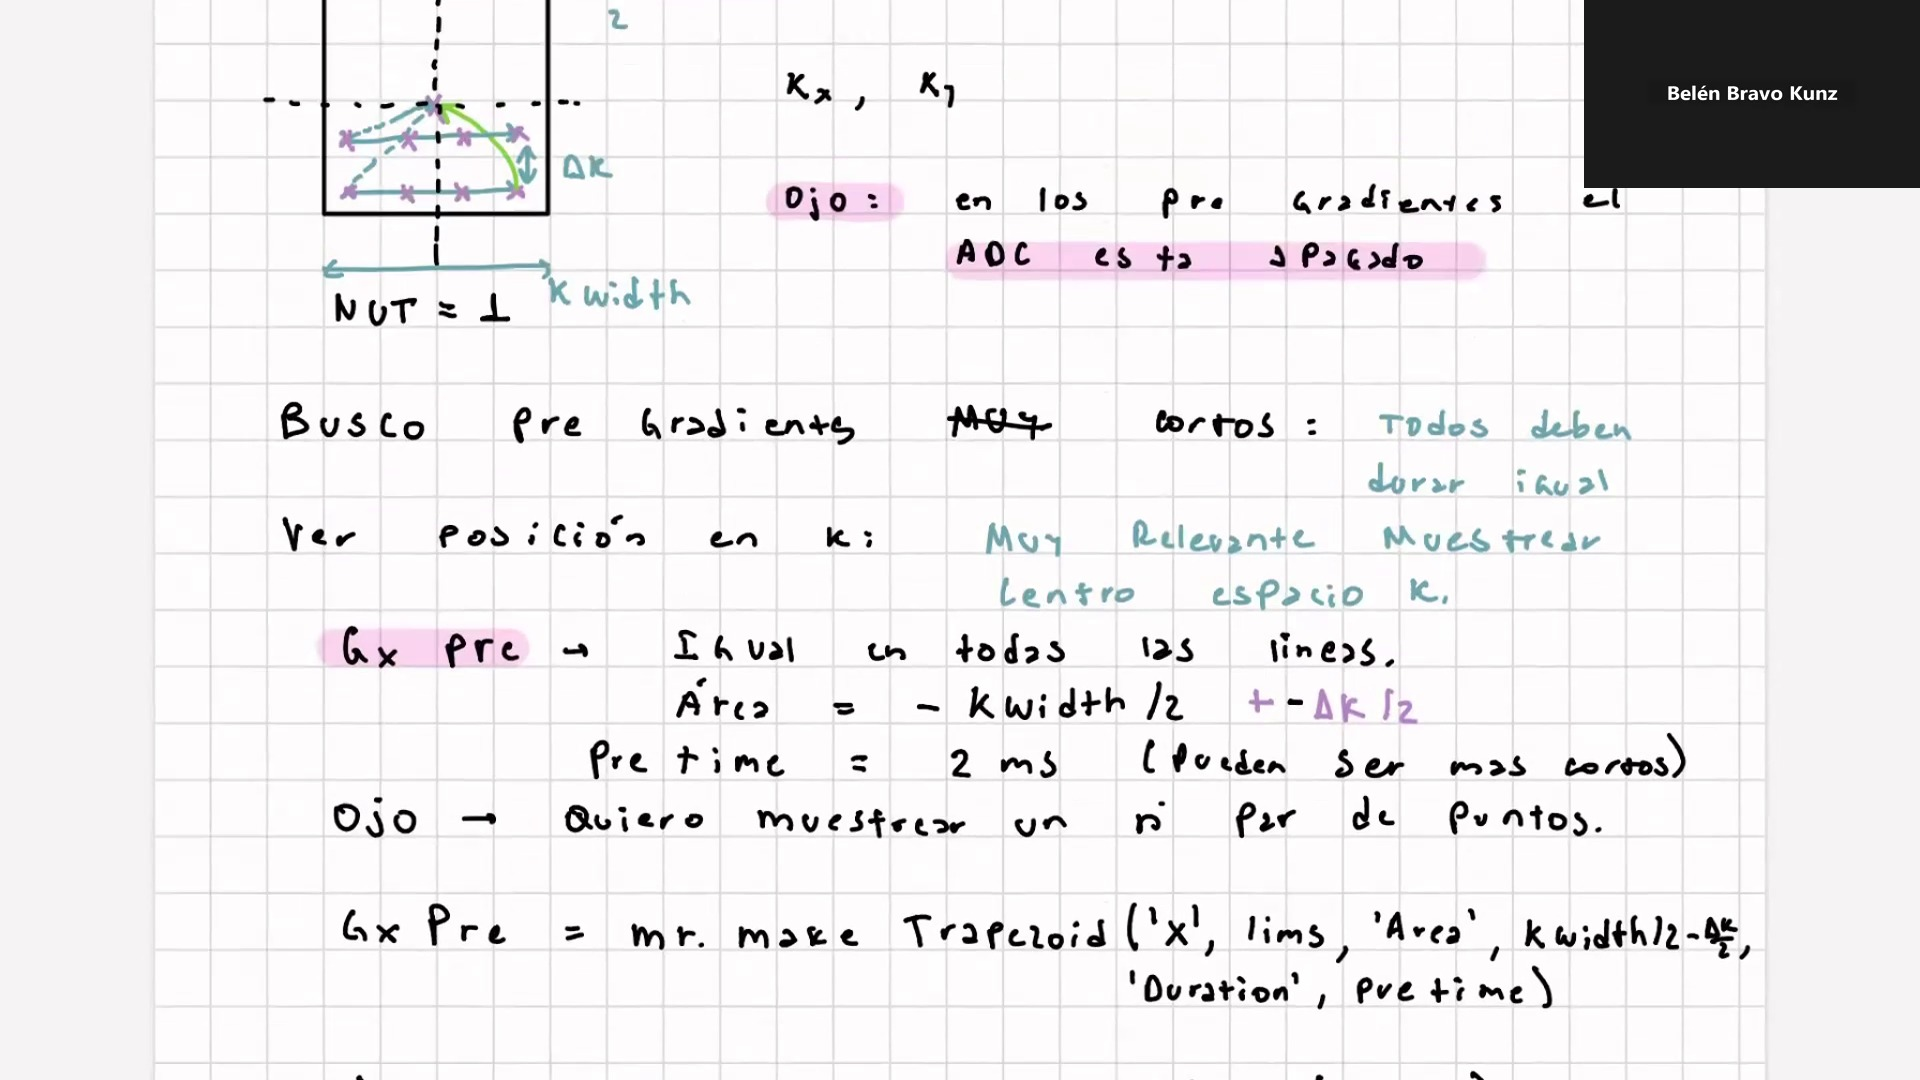 2
Belén Bravo Kunz
Kx , Ky
ΔK
Ojo: en los pre Gradientes el
ADC esta apagado
K width
NUT = 1
Busco pre Gradients Muy cortos : Todos deben
durar igual
Ver posición en K: Muy Relevante Muestrear
Centro espacio K.
Gx pre → Igual en todas las líneas.
Área = - Kwidth /2 + - ΔK/2
Pre time = 2 ms (Pueden ser mas cortos)
Ojo → Quiero muestrear un n° par de puntos.
Gx Pre = mr. make Trapezoid ('x', lims, 'Area', Kwidth/2-ΔK/2,
'Duration', pre time)